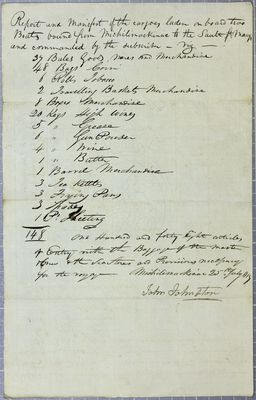 Report and Manifest of the cargoes laden on board two
Boats bound from Michilimackinac to the Sault St Marys
and commanded by the subscriber - viz -
37 Bales Goods and Merchandise
48 Bags Corn
Tobacco
2 Travelling Baskets Merchandise
8 Boxes Merchandise
20 Kegs High Wines
5 " Grease
" Gun Powder
4 " Wine
1 " Butter
1 Barrel Merchandise
3 Tea Kettles
3 Frying Pans
3 Spades
1 Ps Sheeting
148 One Hundred and forty Eight articles
of Entry with the Baggage of the
the Sea Stores and Provisions necessary
for the voyage Michilimackinac
John Johnston